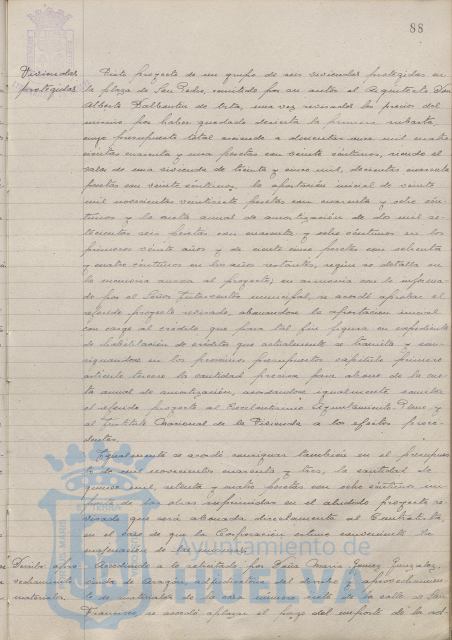 88
Viviendas
protegidas
Visto proyecto de un grupo de seis viviendas protegidas en
la plaza de San Pedro, remitido por su autor el Arquitecto Don
Alberto Balbontin de Orta, una vez revisados los precios del
mismo por haber quedado desierta la primera subasta,
cuyo presupuesto total asciende a doscientas once mil cuatro
cientas cuarenta y una pesetas con veinte céntimos, siendo el
valor de una vivienda de treinta y cinco mil, doscientas cuarenta
pesetas con veinte céntimos, la aportación inicial de veinte
mil novecientas veintisiete pesetas con cuarenta y ocho cén-
timos y la cuota anual de amortización de dos mil se-
tecientas seis pesetas con cuarenta y ocho céntimos en los
primeros veinte años y de ciento cinco pesetas con setenta
y cuatro céntimos en los años restantes, según se detalla en
la memoria anexa al proyecto; en armonía con lo informa-
do por el Señor Interventor municipal, se acordó aprobar el
referido proyecto revisado, abonandose la aportación inicial
con cargo al crédito que para tal fin figura en expediente
de habilitación de créditos que actualmente se tramita y con-
signandose en los proximos presupuestos capítulo primero
artículo tercero la cantidad precisa para abono de la cuo-
ta anual de amortización, acordandose igualmente someter
el referido proyecto al Excelentísimo Ayuntamiento Pleno y
al Instituto Nacional de la Vivienda a los efectos proce-
dentes.
Igualmente se acordó consignar también en el presupues-
to de mil novecientos cuarenta y tres, la cantidad de
quince mil, setenta y cuatro pesetas con ocho céntimos im-
porte de las obras suprimidas en el aludido proyecto re-
visado que será abonada directamente al Contratista,
en el caso de que la Corporación estime conveniente la
enajenación de las mismas.
Accediendo a lo solicitado por Doña María Gomez Gonzalez,
viuda de Aragón, adjudicataria del derribo y aprovechamien-
to de materiales de la casa número siete de la calle de San
Francisco, se acordó aplazar el pago del importe de la ad-
Derribo apro-
vechamiento
materiales.
Ayuntamiento de
HUELVA